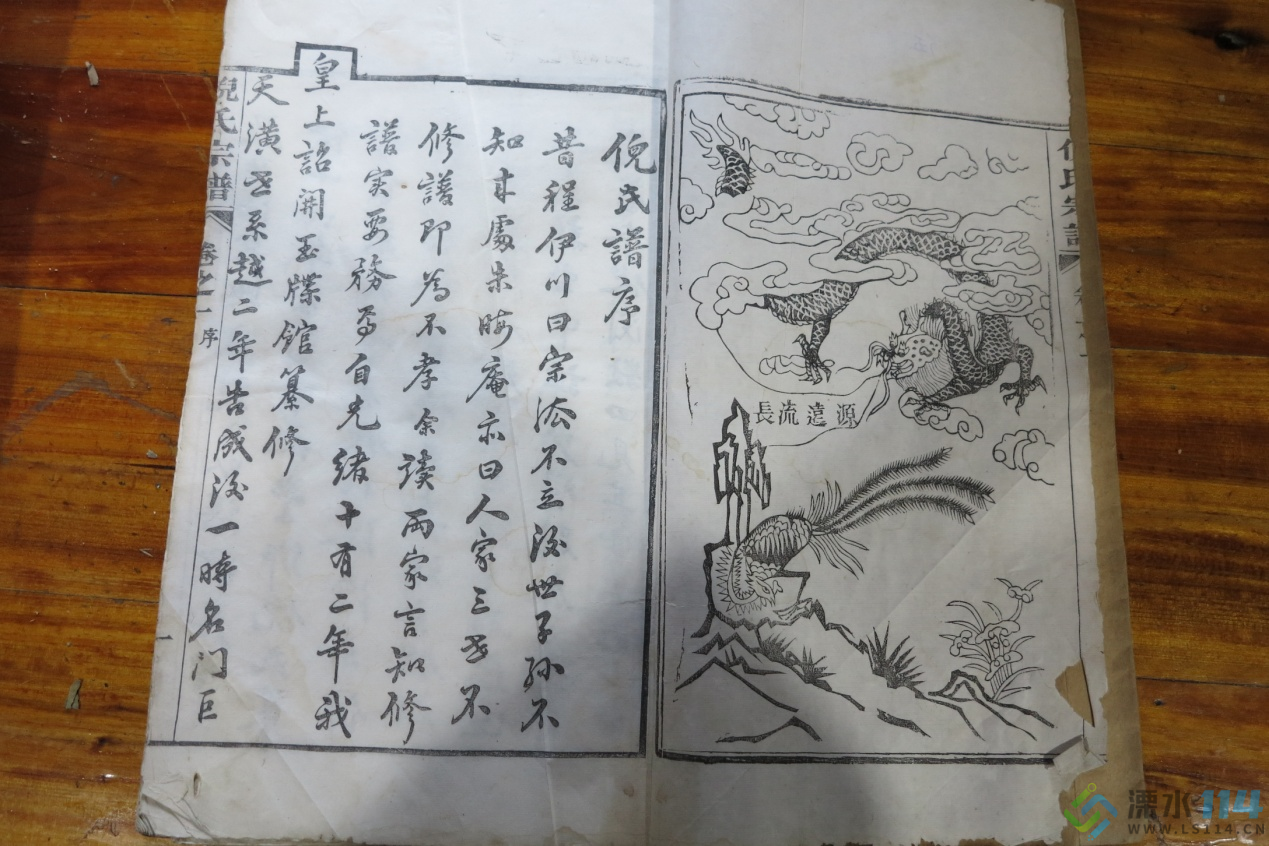 倪氏宗譜
源遠流長
倪氏譜序
昔程伊川曰宗法不立後世子孫不
知来處朱晦庵亦曰人家三世不
修譜即為不孝余讀兩家言知修
譜实要務焉自光緒十有二年我
皇上詔開玉牒館纂修
天潢世系越二年告成後一時名门巨
倪氏宗譜
卷之一
序
一
溧水114
WWW.LS114.CN